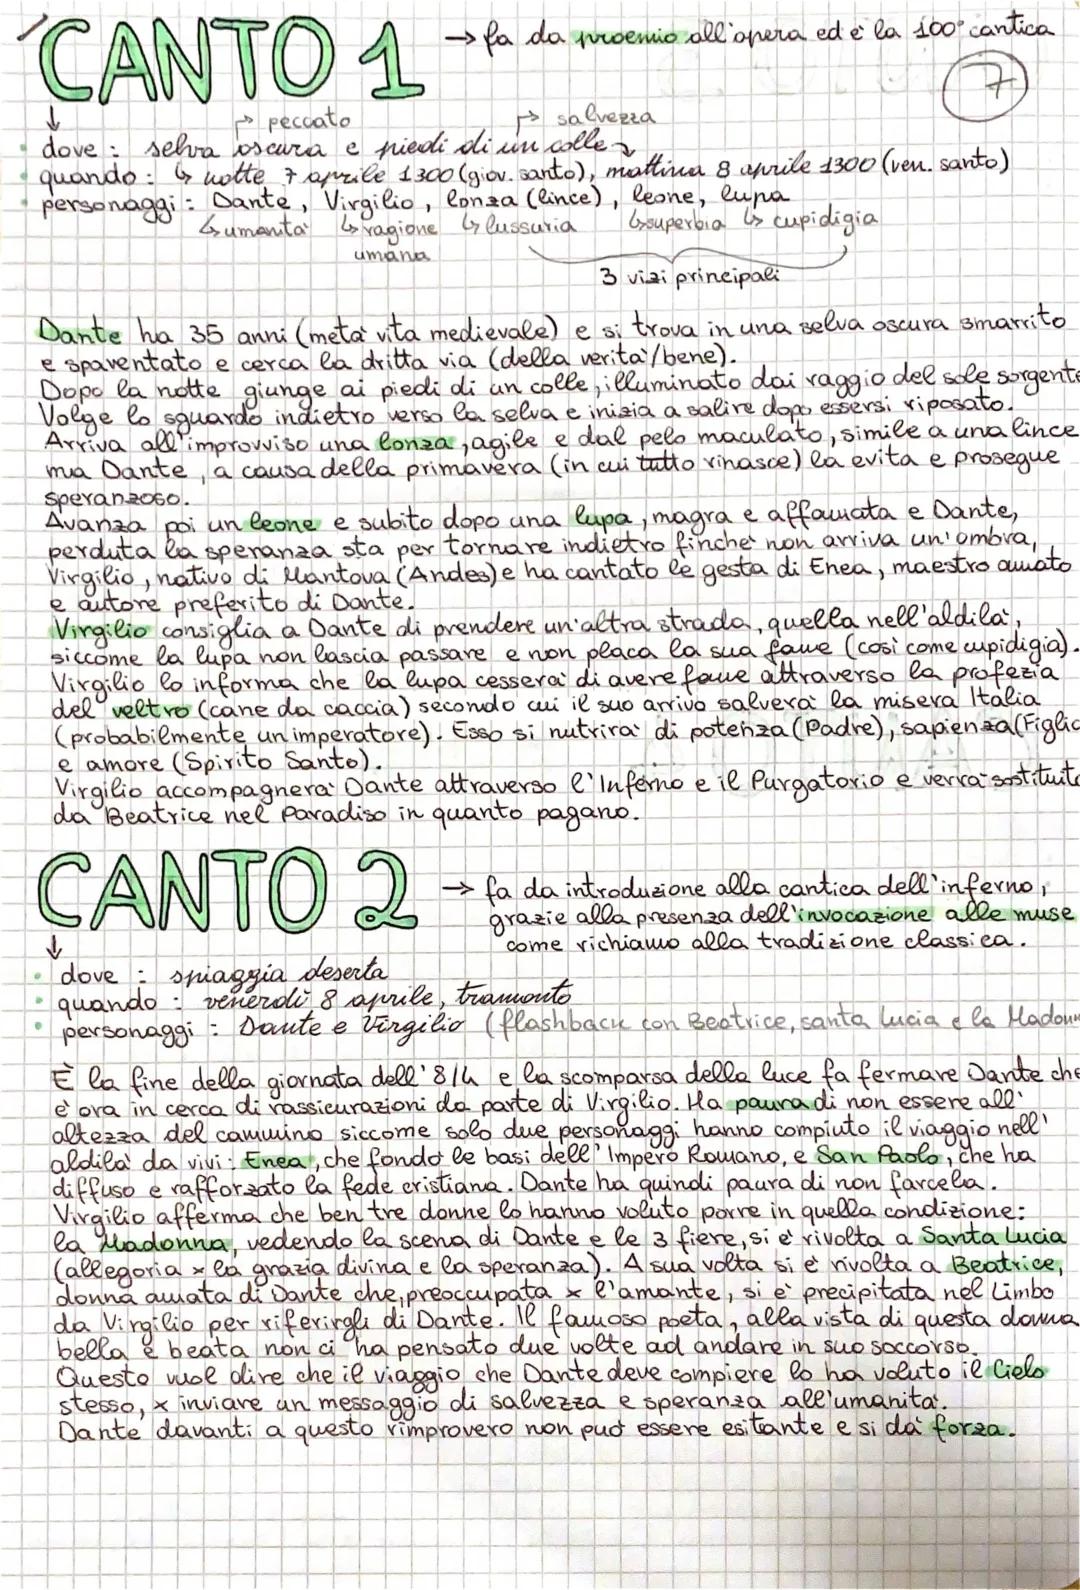 CANTO 1 → fa da proemio all'opera ed è la 100° cantica
7
↓ ↱ peccato ↱ salvezza
• dove : selva oscura e piedi di un colle
• quando : ↳ notte 7 aprile 1300 (giov. santo), mattina 8 aprile 1300 (ven. santo)
• personaggi : Dante, Virgilio, lonza (lince), leone, lupa
↳ umanità ↳ ragione umana ↳ lussuria ↳ superbia ↳ cupidigia
3 vizi principali
Dante ha 35 anni (metà vita medievale) e si trova in una selva oscura smarrito
e spaventato e cerca la dritta via (della verità/bene).
Dopo la notte giunge ai piedi di un colle, illuminato dai raggio del sole sorgente
Volge lo sguardo indietro verso la selva e inizia a salire dopo essersi riposato.
Arriva all'improvviso una lonza, agile e dal pelo maculato, simile a una lince
ma Dante, a causa della primavera (in cui tutto rinasce) la evita e prosegue
speranzoso.
Avanza poi un leone e subito dopo una lupa, magra e affamata e Dante,
perduta la speranza sta per tornare indietro finché non arriva un'ombra,
Virgilio, nativo di Mantova (Andes) e ha cantato le gesta di Enea, maestro amato
e autore preferito di Dante.
Virgilio consiglia a Dante di prendere un'altra strada, quella nell'aldilà,
siccome la lupa non lascia passare e non placa la sua fame (così come cupidigia).
Virgilio lo informa che la lupa cesserà di avere fame attraverso la profezia
del veltro (cane da caccia) secondo cui il suo arrivo salverà la misera Italia
(probabilmente un imperatore). Esso si nutrirà di potenza (Padre), sapienza (Figlio
e amore (Spirito Santo).
Virgilio accompagnerà Dante attraverso l'Inferno e il Purgatorio e verrà sostituito
da Beatrice nel Paradiso in quanto pagano.
CANTO 2 → fa da introduzione alla cantica dell'inferno,
grazie alla presenza dell'invocazione alle muse
come richiamo alla tradizione classica.
↓
• dove : spiaggia deserta
• quando : venerdì 8 aprile, tramonto
• personaggi : Dante e Virgilio (flashback con Beatrice, santa Lucia e la Madonn
È la fine della giornata dell'8/4 e la scomparsa della luce fa fermare Dante che
è ora in cerca di rassicurazioni da parte di Virgilio. Ha paura di non essere all'
altezza del cammino siccome solo due personaggi hanno compiuto il viaggio nell'
aldilà da vivi: Enea, che fondò le basi dell'Impero Romano, e San Paolo, che ha
diffuso e rafforzato la fede cristiana. Dante ha quindi paura di non farcela.
Virgilio afferma che ben tre donne lo hanno voluto porre in quella condizione:
la Madonna, vedendo la scena di Dante e le 3 fiere, si è rivolta a Santa Lucia
(allegoria x la grazia divina e la speranza). A sua volta si è rivolta a Beatrice,
donna amata di Dante che, preoccupata x l'amante, si è precipitata nel Limbo
da Virgilio per riferirgli di Dante. Il famoso poeta, alla vista di questa donna
bella e beata non ci ha pensato due volte ad andare in suo soccorso.
Questo vuol dire che il viaggio che Dante deve compiere lo ha voluto il Cielo
stesso, x inviare un messaggio di salvezza e speranza all'umanità.
Dante davanti a questo rimprovero non può essere esitante e si dà forza.